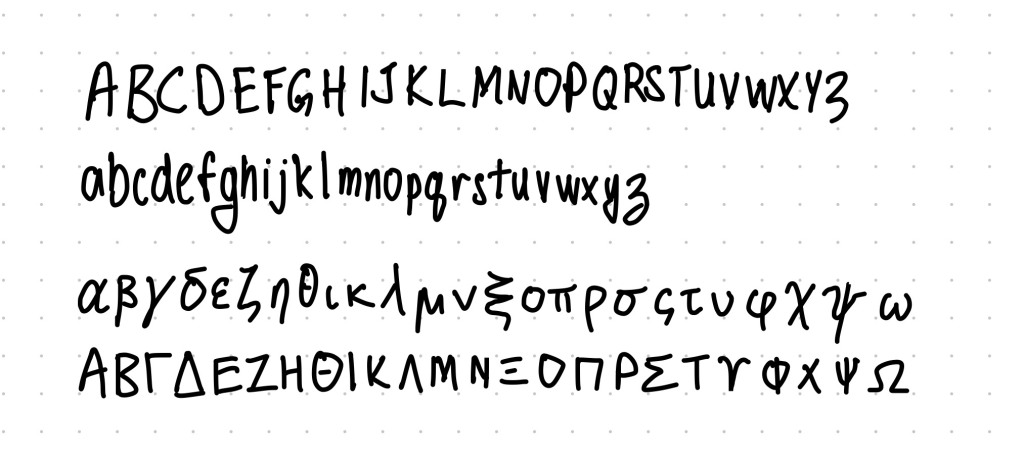 ABCDEFGHIJKLMNOPQRSTUVWXYZ
abcdefghijklmnopqrstuvwxyz
αβγδεζηθικλμνξοπρσςτυφχψω
ΑΒΓΔΕΖΗΘΙΚΛΜΝΞΟΠΡΣΤΥΦΧΨΩ